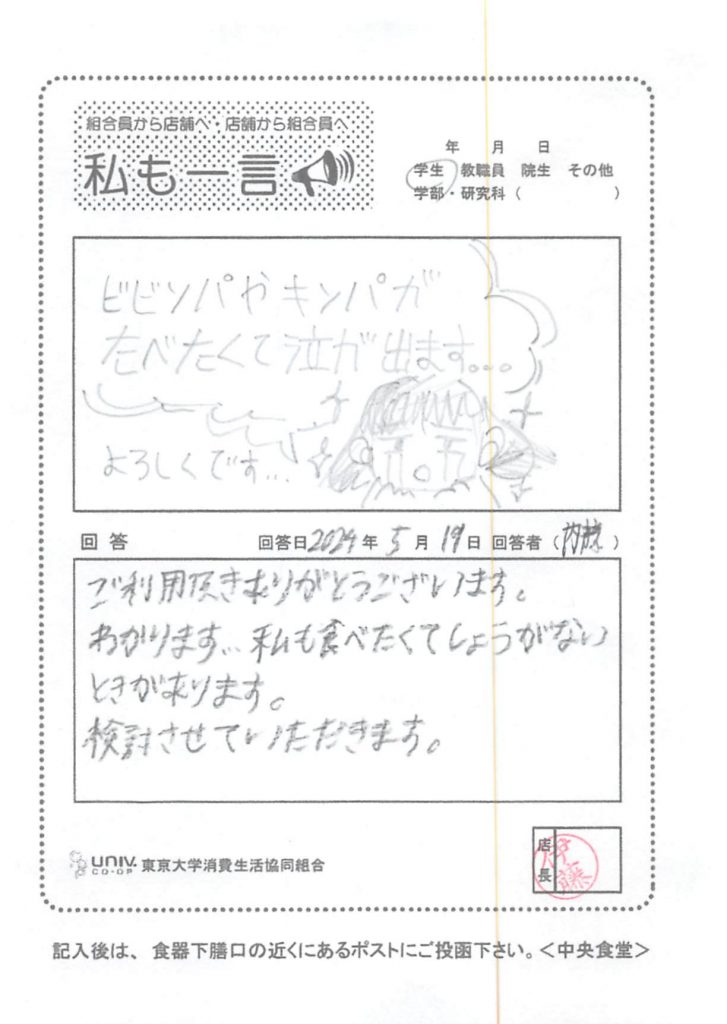 組合員から店舗へ・店舗から組合員へ
私も一言
年 月 日
学生 教職員 院生 その他
学部・研究科 ( )
ビビンパやキンパが
たべたくて泣が出ます...
よろしくです...
回答 回答日 2024年 5月 19日 回答者 (内藤)
ご利用頂きありがとうございます。
わかります... 私も食べたくてしょうがない
ときがあります。
検討させていただきます。
店長
UNIV. CO-OP 東京大学消費生活協同組合
記入後は、食器下膳口の近くにあるポストにご投函下さい。<中央食堂>